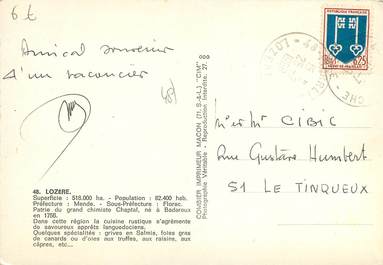 6€
Amical souvenir
d'un vacancier
48
48. LOZERE.
Superficie : 518.000 ha. - Population : 82.400 hab.
Préfecture : Mende. - Sous-Préfecture : Florac.
Patrie du grand chimiste Chaptal, né à Badaroux
en 1756.
Dans cette région la cuisine rustique s'agrémente
de savoureux apprêts languedociens.
Quelques spécialités : grives en Salmis, foies gras
de canards ou d'oies aux truffes, aux raisins, aux
câpres, etc...
COMBIER IMPRIMEUR MACON (71. S.-&-L.) "CIM"
Photographie Véritable - Reproduction Interdite. 27.
REPUBLIQUE FRANCAISE
0,25
MONT-DE-MARSAN
48
LOZ
Mr et Mme CIBIC
Rue Gustave Humbert
51 LE TINQUEUX